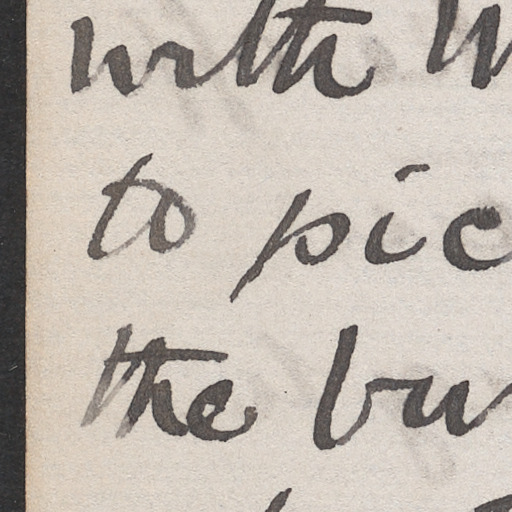 with
to pic
the bu